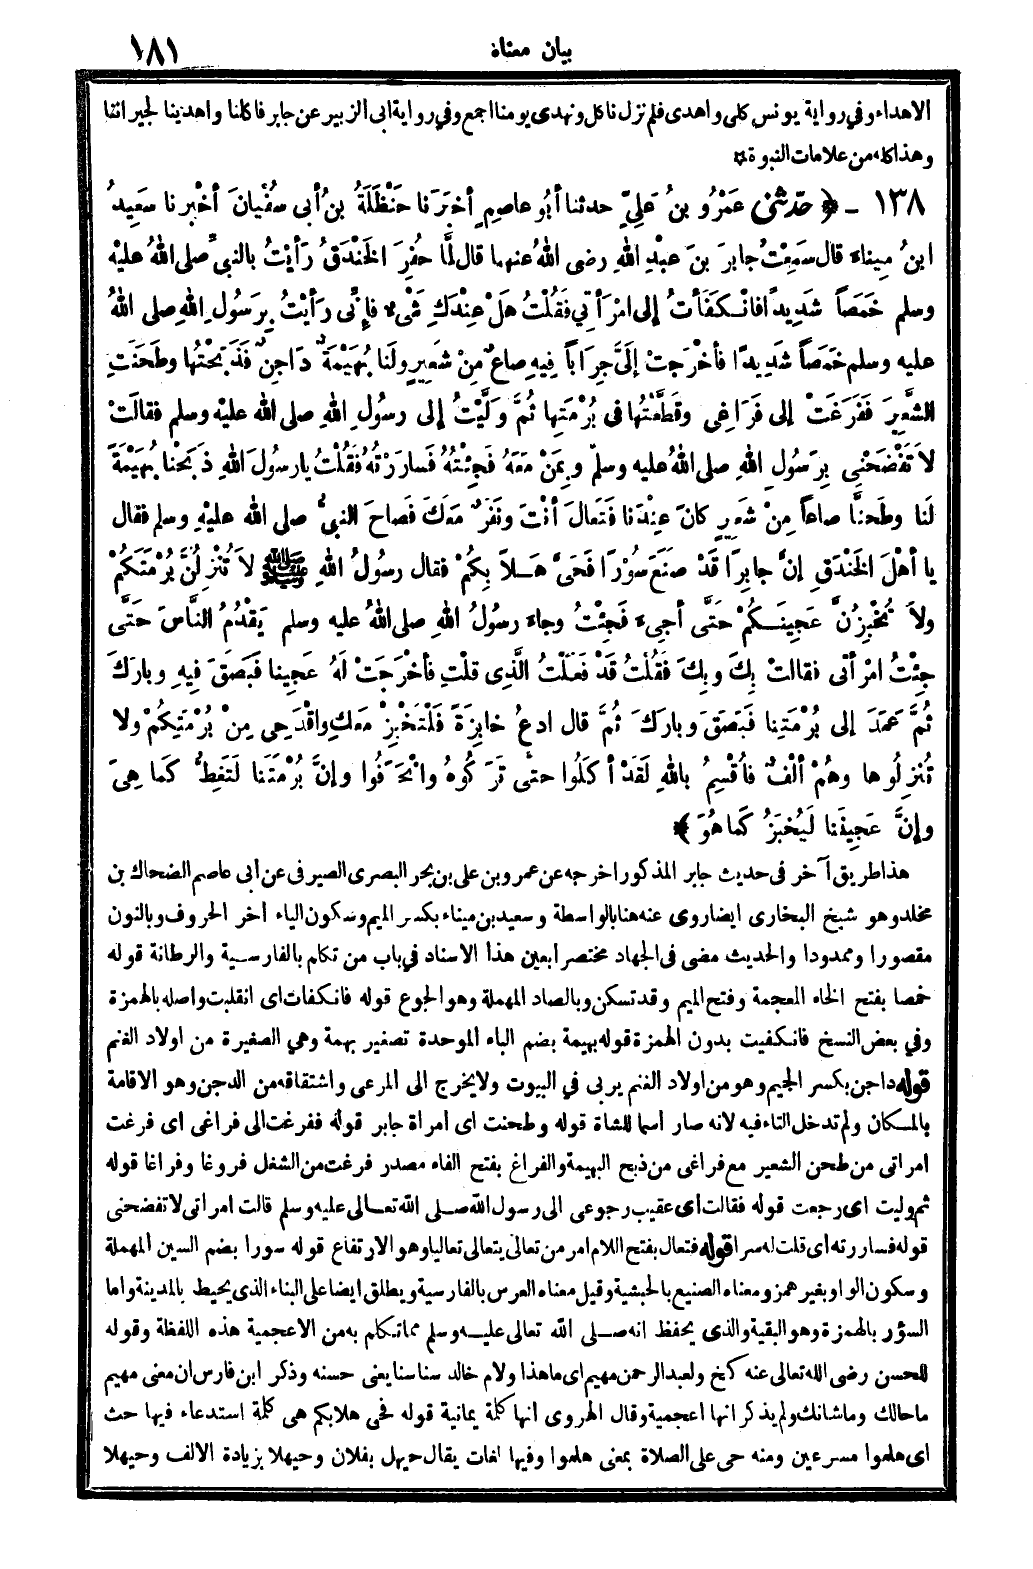 بيان معناه
١٨١
الاهداء وفي رواية يونس كلى واهدى فلم نزل نأكل ونهدى يومنا اجمع وفي رواية ابى الزبير عن جابر فاكلنا واهدينا لجيراننا
وهذا كله من علامات النبوة *
١٣٨ ـ ﴿ حَدَّثَنى عَمْرُو بنُ عَلِيٍّ حدثنا أبُو عاصِمٍ أخْبَرَنا حَنْظَلَةُ بنُ أبى سُفْيانَ أخْبرنا سَعِيدُ
ابنُ مِيناءَ قال سَمِعْتُ جابِرَ بنَ عبْدِ اللهِ رضى اللهُ عنهما قال لَمَّا حُفِرَ الخَنْدَقُ رَأيْتُ بالنبىِّ صلى اللهُ عليْهِ
وسلم خَمَصاً شَدِيداً فانْكَفَأتُ إلى امْرَأتِي فَقُلْتُ هَلْ عِنْدَكِ شَىْءٌ فإنِّى رَأيْتُ بِرَسُولِ اللهِ صلى اللهُ
عليه وسلم خَمَصاً شَدِيدًا فأخْرَجَتْ إلَىَّ جِرَاباً فِيهِ صاعٌ مِنْ شَعِيرٍ ولَنا بُهَيْمَةٌ دَاجِنٌ فَذَبَحْتُها وطَحَنَتِ
الشَّعِيرَ فَفَرَغَتْ إلى فَرَاغِى وقَطَّعْتُها فى بُرْمَتِها ثُمَّ وَلَّيْتُ إلى رسُولِ اللهِ صلى الله عليْهِ وسلم فقالَتْ
لاَ تَفْضَحْنِى بِرَسُولِ اللهِ صلى اللهُ عليه وسلّم وبِمَنْ مَعَهُ فَجِئْتُهُ فَسارَرْتُهُ فَقُلْتُ يارسُولَ اللهِ ذَبَحْنا بُهَيْمَةً
لَنا وطَحنَّا صاعاً مِنْ شَعِيرٍ كانَ عِنْدَنا فَتَعالَ أنْتَ ونَفَرٌ مَعَكَ فَصاحَ النبىُّ صلى الله عليْهِ وسلم فقال
يا أهْلَ الخَنْدَقِ إنَّ جابِرًا قَدْ صنَعَ سُوْرًا فَحَىَّ هَلاً بِكُمْ فقال رسُولُ اللهِ ﷺ لاَ تُنْزِلُنَّ بُرْمَتَكُمْ
ولاَ تُخْبِزُنَّ عَجِينَكُمْ حَتَّى أجِىءَ فَجِئْتُ وجاءَ رسُولُ اللهِ صلى اللهُ عليه وسلم يَقْدُمُ النَّاسَ حَتَّى
جِئْتُ امْرَأتى فقالتْ بِكَ وبِكَ فَقُلْتُ قَدْ فَعَلْتُ الَّذِى قلْتِ فأخْرَجَتْ لَهُ عَجِينا فَبَصَقَ فِيهِ وبارَكَ
ثُمَّ عَمَدَ إلى بُرْمَتِنا فَبَصَقَ وبارَكَ ثُمَّ قال ادعُ خابِزَةً فَلْتَخْبِزْ مَعَكِ واقْدَحِى مِنْ بُرْمَتِكُمْ ولا
تُنْزِلُوها وهُمْ ألْفٌ فأُقْسِمُ باللهِ لقَدْ أكَلُوا حتى تَرَكُوهُ وانْحَرَفُوا وإنَّ بُرْمَتَنا لَتَغِطُّ كَما هِىَ
وإنَّ عَجِينَنا لَيُخبَزُ كَما هُوَ ﴾
هذا طريق آخر فى حديث جابر المذكور اخرجه عن عمرو بن على بن بحر البصرى الصيرفى عن أبى عاصم الضحاك بن
مخلد وهو شيخ البخارى ايضا روى عنه هنا بالواسطة وسعيد بن ميناء بكسر الميم وسكون الياء آخر الحروف وبالنون
مقصورا وممدودا والحديث مضى فى الجهاد مختصرا بعين هذا الاسناد فى باب من تكلم بالفارسية والرطانة قوله
خمصا بفتح الخاء المعجمة وفتح الميم وقد تسكن وبالصاد المهملة وهو الجوع قوله فانكفأت اى انقلبت واصله بالهمزة
وفي بعض النسخ فانكفيت بدون الهمزة قوله بهيمة بضم الباء الموحدة تصغير بهمة وهي الصغيرة من اولاد الغنم
قوله داجن بكسر الجيم وهو من اولاد الغنم يربى في البيوت ولا يخرج الى المرعى واشتقاقه من الدجن وهو الاقامة
بالمكان ولم تدخل التاء فيه لانه صار اسما للشاة قوله وطحنت اى امرأة جابر قوله ففرغت الى فراغى اى فرغت
امراتى من طحن الشعير مع فراغى من ذبح البهيمة والفراغ بفتح الفاء مصدر فرغت من الشغل فروغا وفراغا قوله
ثم وليت اى رجعت قوله فقالت اى عقيب رجوعى الى رسول الله صلى الله تعالى عليه وسلم قالت امراتى لا تفضحنى
قوله فساررته اى قلت له سرا قوله فتعال بفتح اللام امر من تعالى يتعالى تعاليا وهو الارتفاع قوله سورا بضم السين المهملة
وسكون الواو بغير همز ومعناه الصنيع بالحبشية وقيل معناه العرس بالفارسية ويطلق ايضا على البناء الذى يحيط بالمدينة واما
السؤر بالهمزة وهو البقية والذى يحفظ انه صلى الله تعالى عليه وسلم مما تكلم به من الاعجمية هذه اللفظة وقوله
للحسن رضى الله تعالى عنه كخ ولعبد الرحمن مهيم اى ماهذا ولام خالد سنا سنا يعنى حسنه وذكر ابن فارس ان معنى مهيم
ما حالك وما شانك ولم يذكر انها اعجمية وقال الهروى انها كلمة يمانية قوله فحى هلابكم هى كلمة استدعاء فيها حث
اى هلموا مسرعين ومنه حى على الصلاة بمعنى هلموا وفيها لغات يقال حيهل بفلان وحيهلا بزيادة الالف وحيهلا